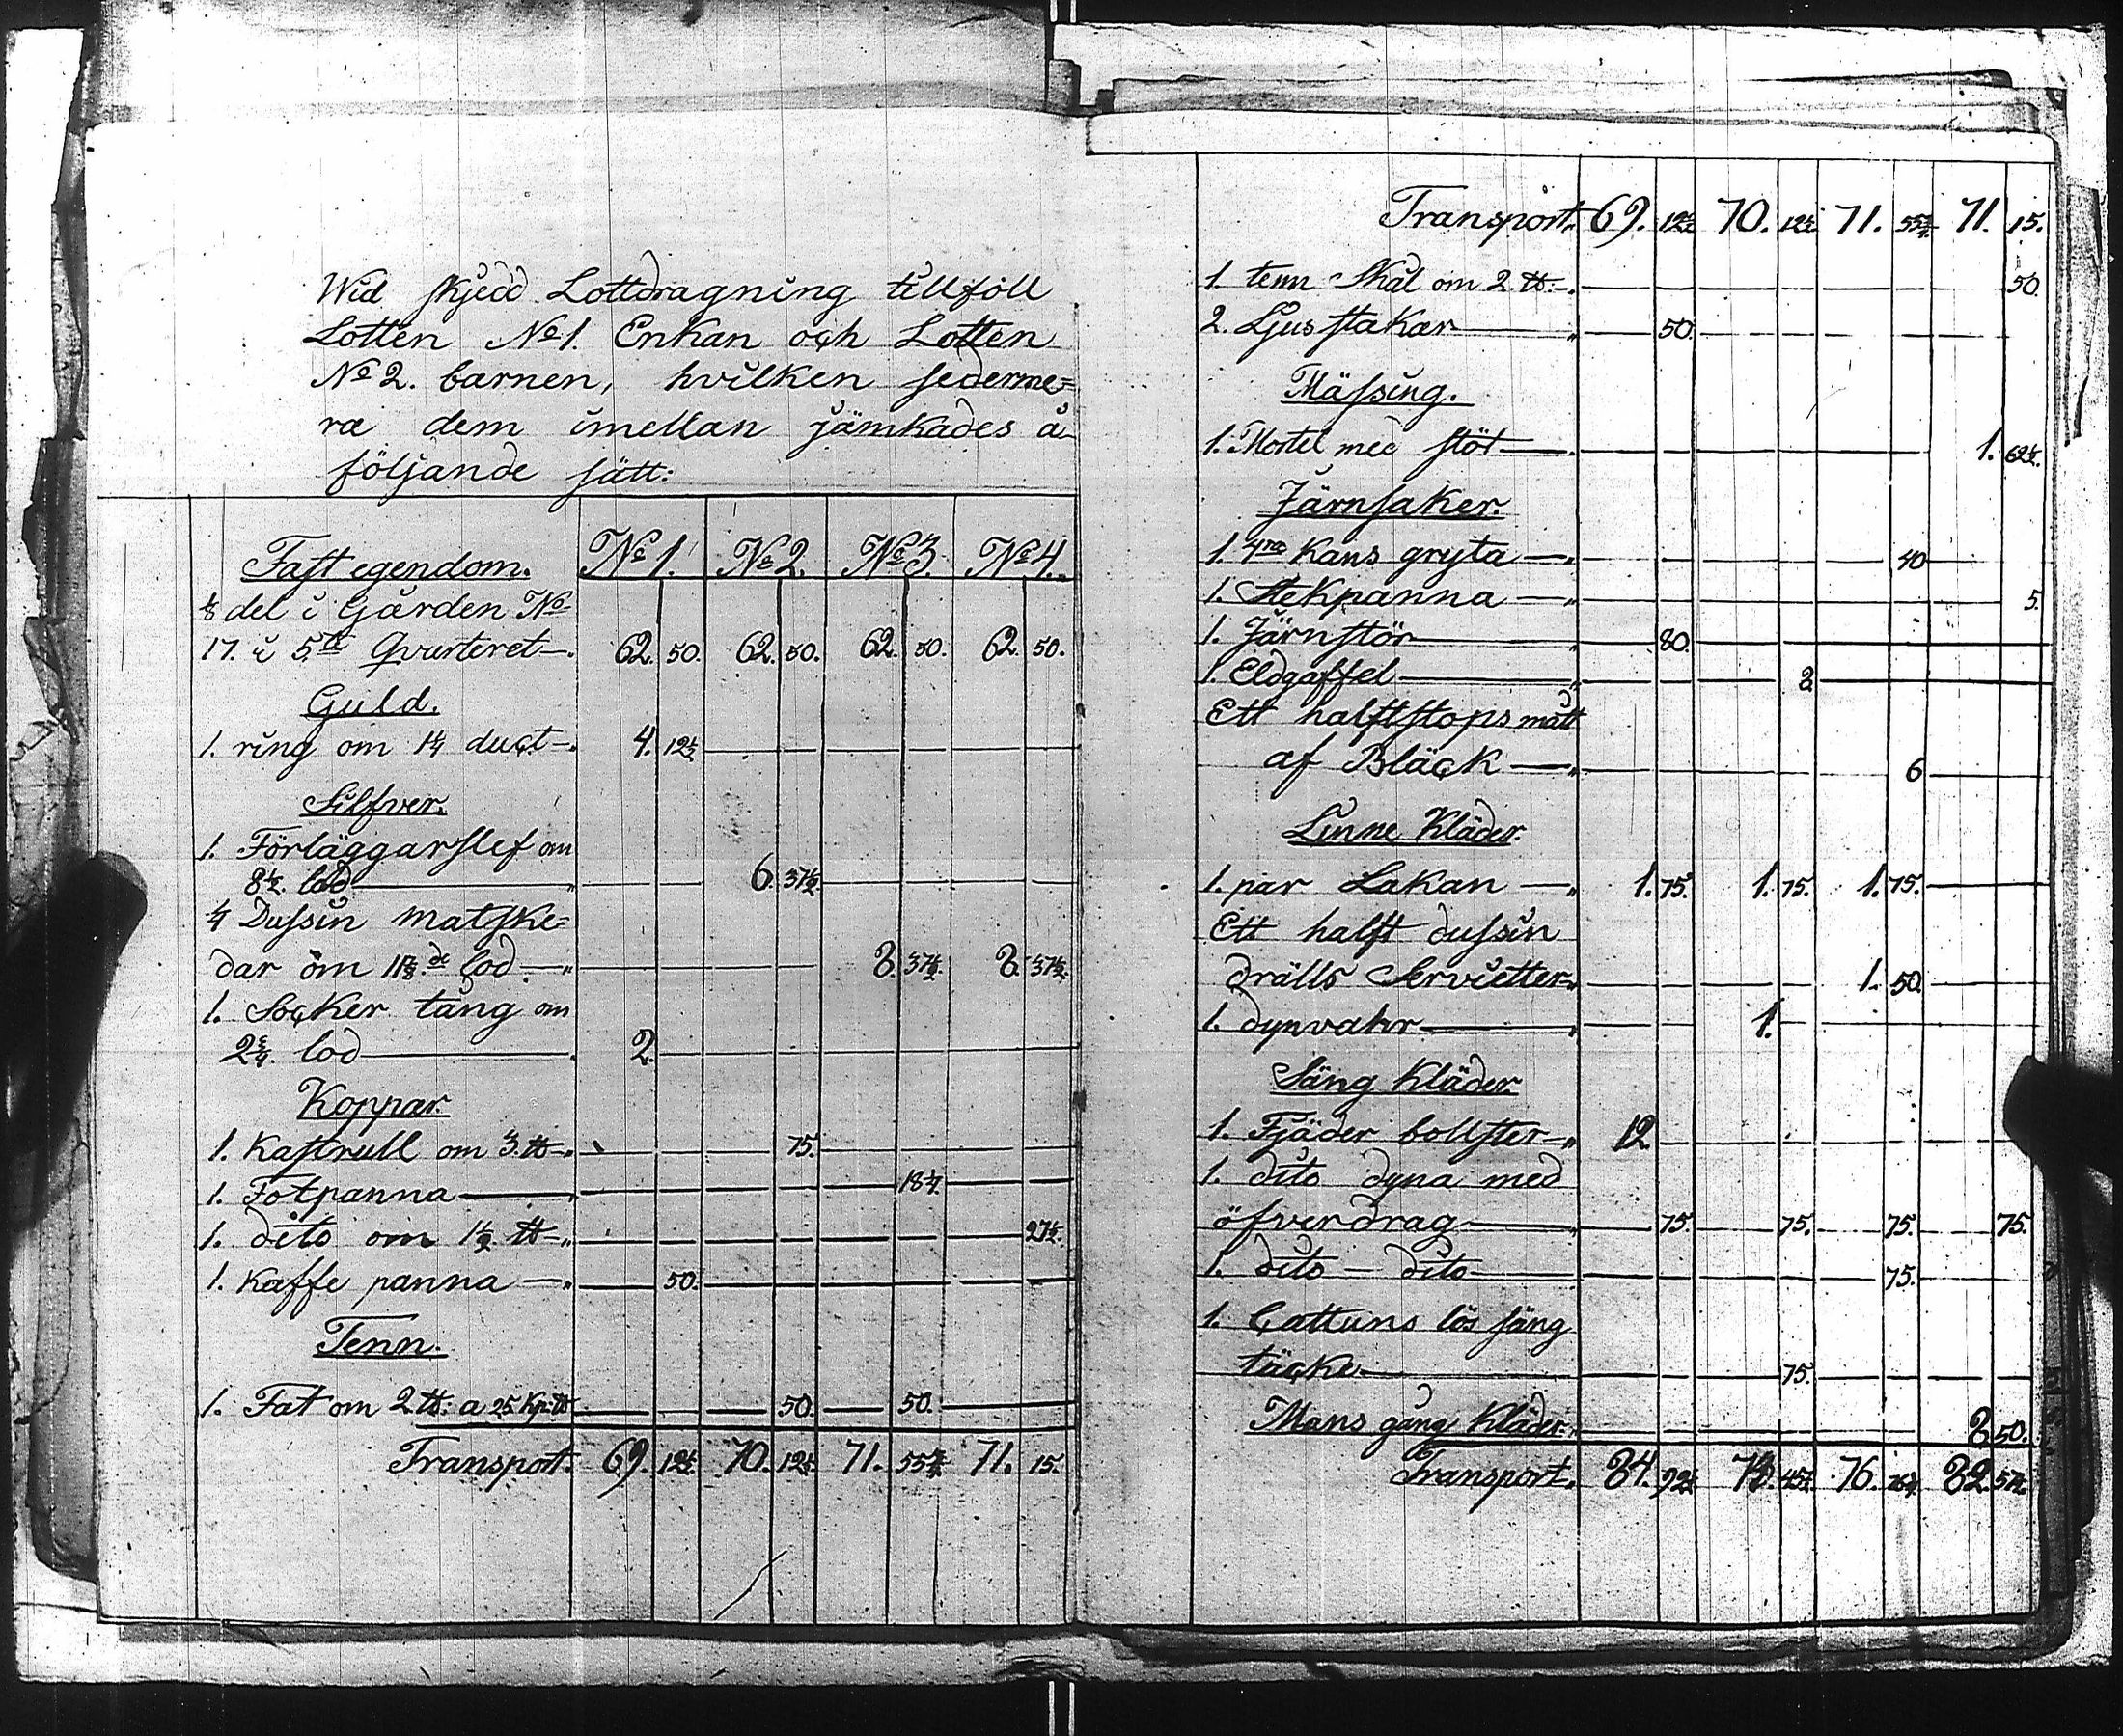 Wid skjedd Lottdragning tillföll
Lotten No 1. Enkan och Lotten
No 2. barnen, hvilken sederme=
ra dem imellan jämkades å
följande sätt:
Fast egendom. No 1. No 2. No 3. No 4.
1/8 del i Gården No
17. i 5te Qvarteret 62. 50. 62. 50. 62. 50. 62. 50.
Guld.
1. ring om 1 1/4 duct 4. 12 1/2
Silfver.
1. Förläggarslef om
8 1/2. lod 6. 37 1/2.
1/4 Dussin matske=
dar om lod 8. 37 1/2. 8. 37 1/2.
1. Socker tång om
lod 2.
Koppar.
1. Kastrull om 3. ℔ 75.
1. Fotpanna 18 3/4.
1. dito om 1 1/2 ℔ 27 1/2.
1. Kaffe panna 50.
Tenn.
1. Fat om 2 ℔: a 25 Kp: ℔ 50. 50.
Transport. 69. 12 1/2. 70. 12 1/2. 71. 55 3/4. 71. 15.
Transport. 69. 12 1/2. 70. 12 1/2. 71. 55 3/4. 71. 15.
1. tenn Skål om 2. ℔. 50.
2. Ljusstakar 50.
Mässing.
1. Mortel med stöt 1. 62 1/2.
Järnsaker.
1. 4ra Kans gryta 40
1. Stekpanna 5.
1. Järnstör 80.
1. Eldgaffel 8
Ett halftstops mått
af Bläck 6
Linne Kläder.
1. par Lakan 1. 75. 1. 75. 1. 75.
Ett halft dussin
drälls Servietter 1. 50.
1. dynvahr 1.
Säng Kläder.
1. Fjäder bolster 12.
1. dito dyna med
öfverdrag 75. 75. 75. 75.
1. dito – dito 75.
1. Cattuns lös säng
täcke 75.
Mans gång Kläder. 8 50.
Transport. 84. 92 1/2. 76. 82. 57 1/2.